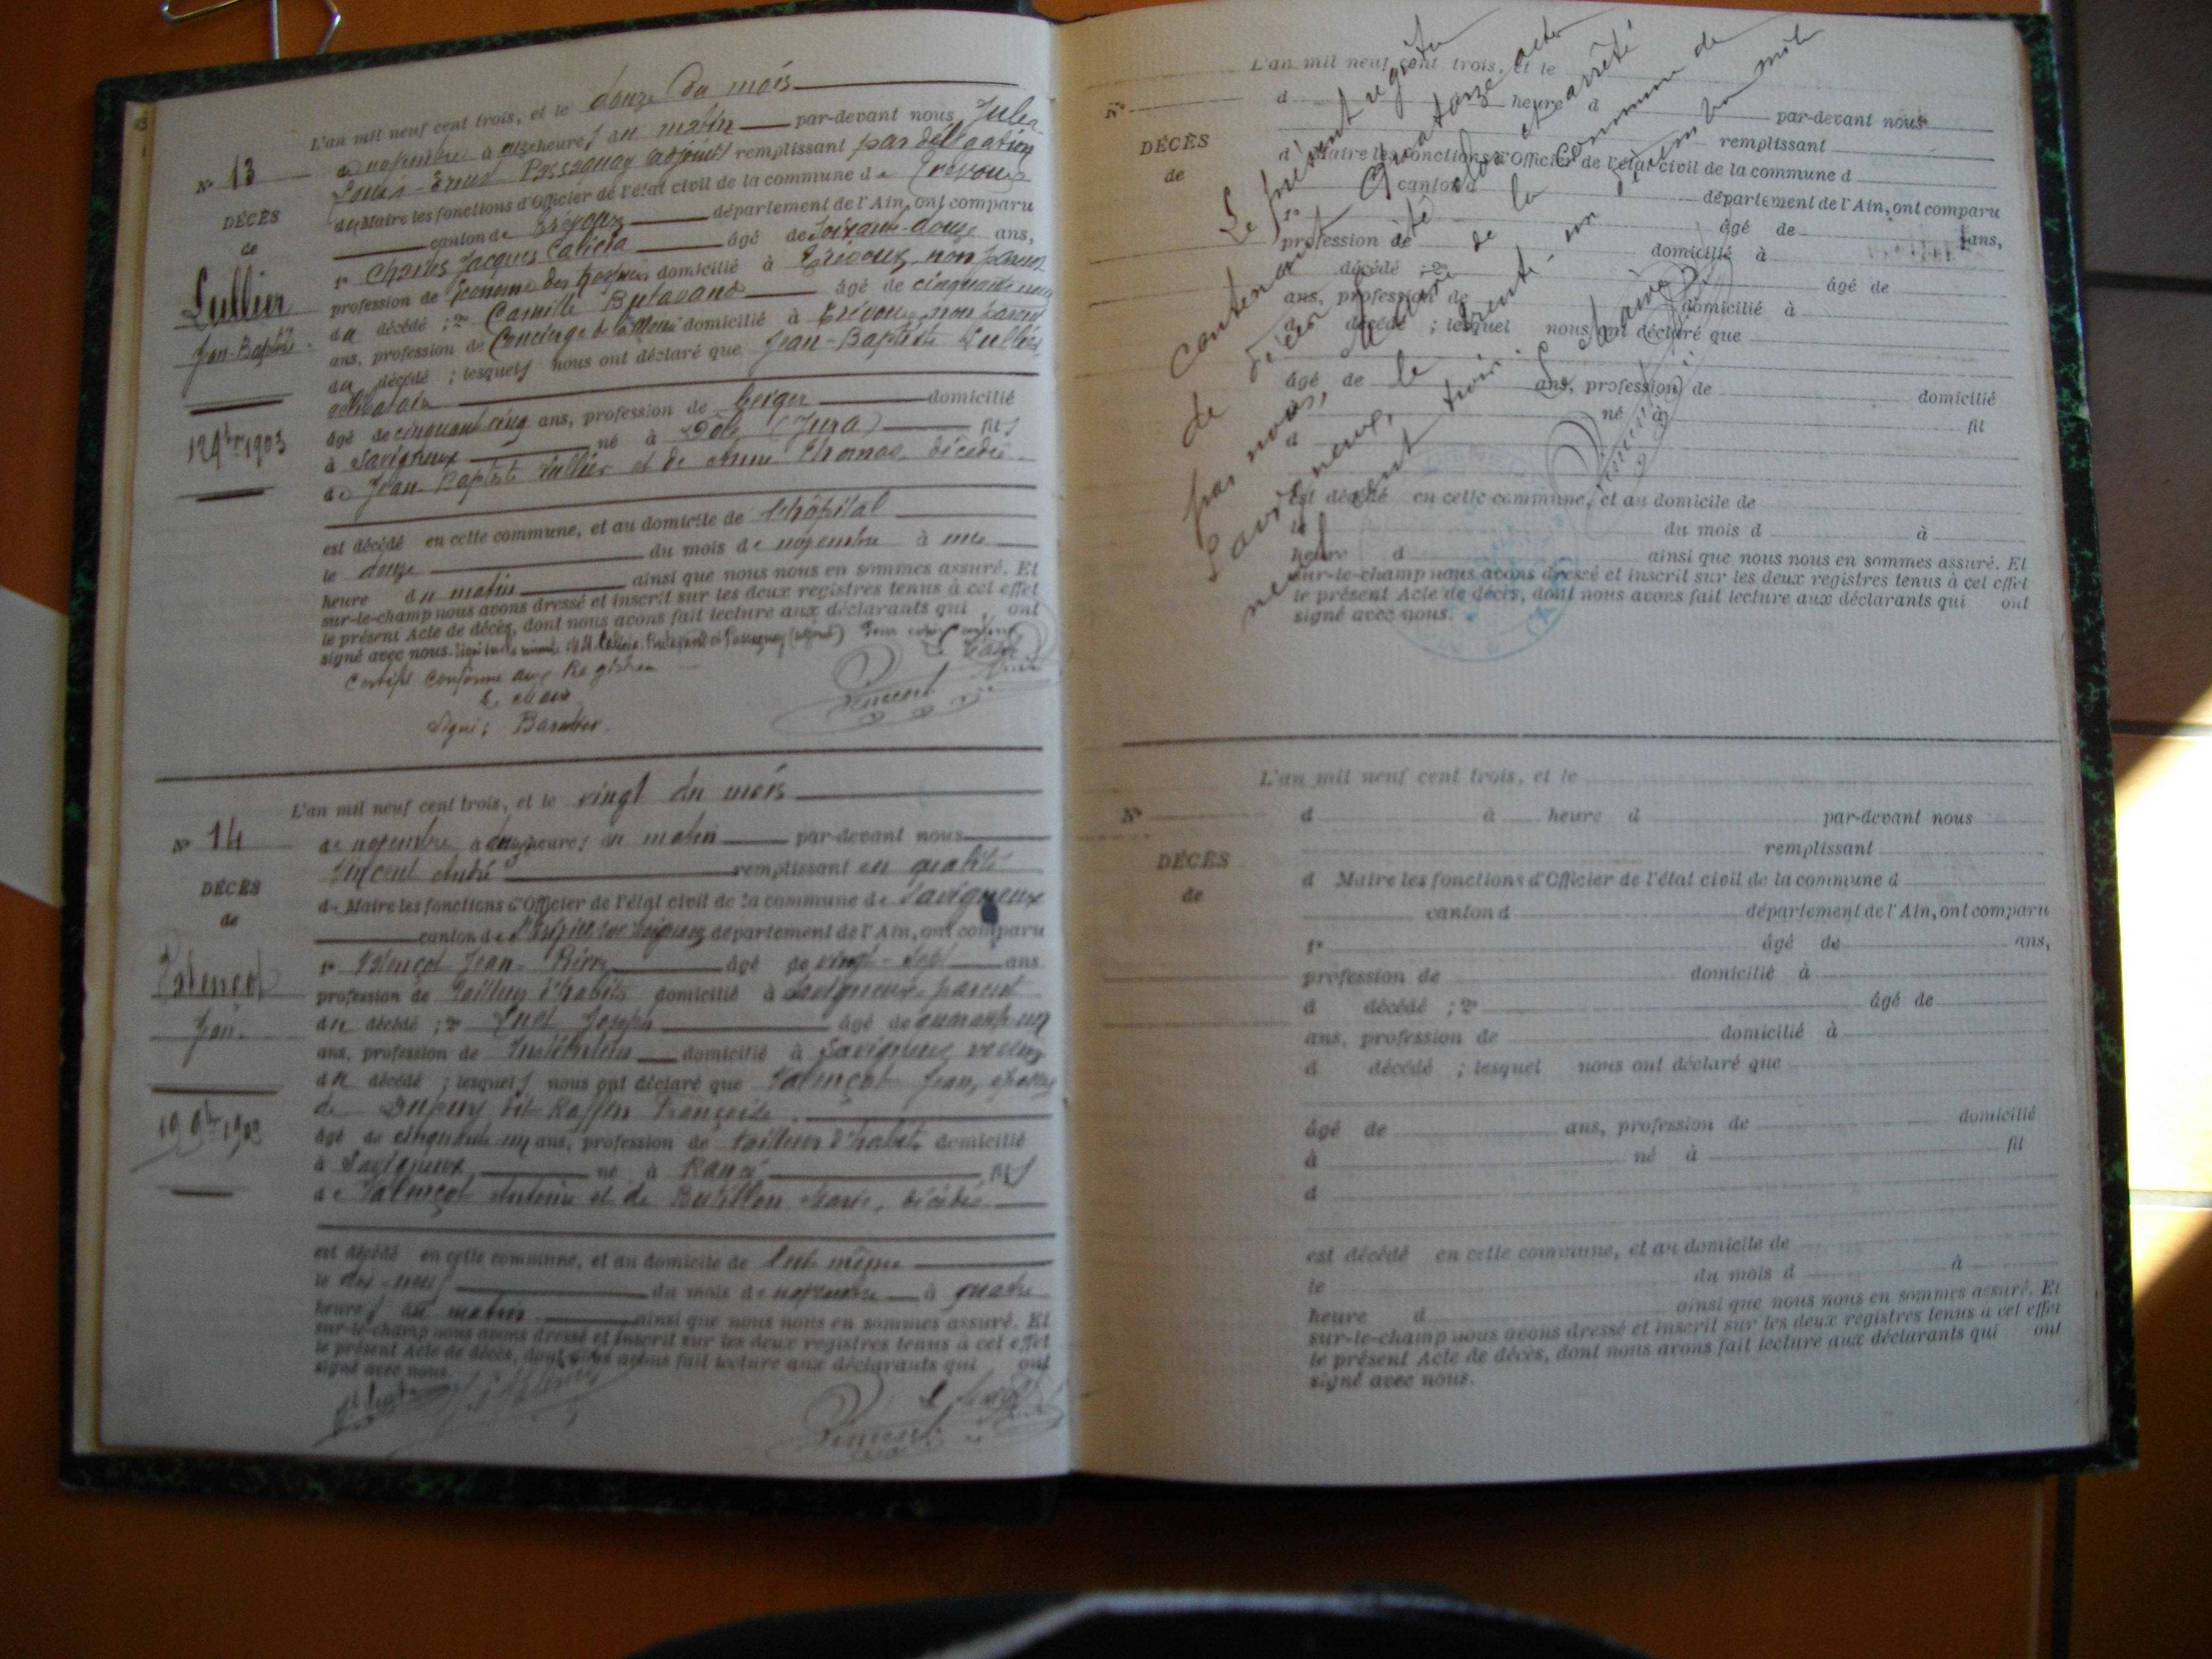 L'an mil neuf cent trois, et le douze du mois
N° 13
de novembre à onze heures du matin par-devant nous Jules
Louis-Ernest Passagnay (adjoint) remplissant par délégation
du Maire les fonctions d'Officier de l'état civil de la commune de Trévoux
DÉCÈS
de
canton de Trévoux département de l'Ain, ont comparu
1° Charles Jacques âgé de soixante-douze ans,
Lullier
Jean-Baptiste
profession de Econome des hospices domicilié à Trévoux, non parent
du décédé ; 2° Camille Butavand âgé de cinquante
ans, profession de Concierge de la domicilié à Trévoux, non parent
du décédé ; lesquels nous ont déclaré que Jean-Baptiste Lullier,
célibataire
12 9bre 1903
âgé de cinquante cinq ans, profession de berger domicilié
à Savigneux né à Dôle (Jura) fils
de Jean-Baptiste Lullier et de Anne Thomas, décédés
est décédé en cette commune, et au domicile de l'hôpital
le douze du mois de novembre à une
heure du matin ainsi que nous nous en sommes assuré. Et
sur-le-champ nous avons dressé et inscrit sur les deux registres tenus à cet effet
le présent Acte de décès, dont nous avons fait lecture aux déclarants qui ont
signé avec nous.
Certifié conforme aux Registres
Le Maire
Signé : Barbier
Vincent
L'an mil neuf cent trois, et le vingt du mois
N° 14
de novembre à dix heures du matin par-devant nous
Vincent André remplissant en qualité
DÉCÈS
de
de Maire les fonctions d'Officier de l'état civil de la commune de Savigneux
canton de St Trivier sur Moignans département de l'Ain, ont comparu
1° Valençot Jean-Pierre âgé de vingt-sept ans
Valençot
Jean
profession de tailleur d'habits domicilié à Savigneux parent
du décédé ; 2° Joseph âgé de quarante-un
ans, profession de Instituteur domicilié à Savigneux voisin
du décédé ; lesquels nous ont déclaré que Valençot Jean, époux
de Dupuy dit Raffin Françoise
19 9bre 1903
âgé de cinquante un ans, profession de tailleur d'habits domicilié
à Savigneux né à Rancé fils
de Valençot Antoine et de Butillon Marie, décédés
est décédé en cette commune, et au domicile de lui-même
le dix-neuf du mois de novembre à quatre
heures du matin ainsi que nous nous en sommes assuré. Et
sur-le-champ nous avons dressé et inscrit sur les deux registres tenus à cet effet
le présent Acte de décès, dont nous avons fait lecture aux déclarants qui ont
signé avec nous
Vincent
L'an mil neuf cent trois, et le
N°
d heure d par-devant nous
remplissant
DÉCÈS
de
d Maire les fonctions d'Officier de l'état civil de la commune d
canton d département de l'Ain, ont comparu
1° âgé de ans,
profession de domicilié à
d décédé ; 2° âgé de
ans, profession de domicilié à
d décédé ; lesquel nous ont déclaré que
âgé de ans, profession de domicilié
à né à fil
d
est décédé en cette commune, et au domicile de
le du mois d à
heure d ainsi que nous nous en sommes assuré. Et
sur-le-champ nous avons dressé et inscrit sur les deux registres tenus à cet effet
le présent Acte de décès, dont nous avons fait lecture aux déclarants qui ont
signé avec nous.
Le présent registre
contenant Quatorze actes
de décès a été clos et arrêté
par nous, Maire de la commune de
Savigneux, le trente-un Décembre mil
neuf cent trois.
Le Maire
Vincent
L'an mil neuf cent trois, et le
N°
d à heure d par-devant nous
remplissant
DÉCÈS
de
d Maire les fonctions d'Officier de l'état civil de la commune d
canton d département de l'Ain, ont comparu
1° âgé de ans,
profession de domicilié à
d décédé ; 2° âgé de
ans, profession de domicilié à
d décédé ; lesquel nous ont déclaré que
âgé de ans, profession de domicilié
à né à fil
d
est décédé en cette commune, et au domicile de
le du mois d à
heure d ainsi que nous nous en sommes assuré. Et
sur-le-champ nous avons dressé et inscrit sur les deux registres tenus à cet effet
le présent Acte de décès, dont nous avons fait lecture aux déclarants qui ont
signé avec nous.